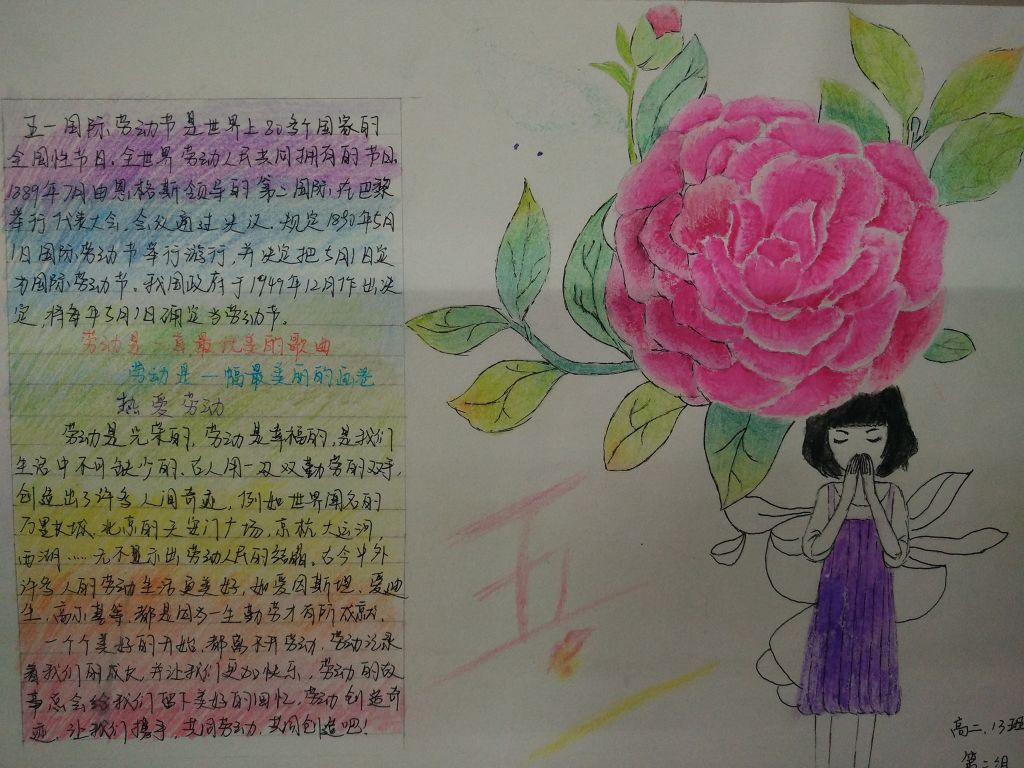 五一国际劳动节是世界上80多个国家的
全国性节日。全世界劳动人民共同拥有的节日。
1889年7月由恩格斯领导的第二国际,在巴黎
举行代表大会,会议通过决议,规定1890年5月
1日国际劳动节举行游行,并决定把5月1日定
为国际劳动节。我国政府于1949年12月作出决
定,将每年5月1日确定为劳动节。
劳动是一首最优美的歌曲
劳动是一幅最美丽的画卷
热爱劳动
劳动是光荣的,劳动是幸福的,是我们
生活中不可缺少的,古人用一双双勤劳的双手,
创造出了许多人间奇迹,例如世界闻名的
万里长城,北京的天安门广场,京杭大运河,
西湖……无不显示出劳动人民的结晶。古今中外
许多人的劳动生活更美好,如爱因斯坦,爱迪
生,高尔基等,都是因为一生勤劳才有所成就。
一个个美好的开始,都离不开劳动,劳动记录
着我们的成长,并让我们更加快乐,劳动的故
事总会给我们留下美好的回忆,劳动创造奇
迹,让我们携手,共同劳动,共同创造吧!
五
一
高二、13班
第二组